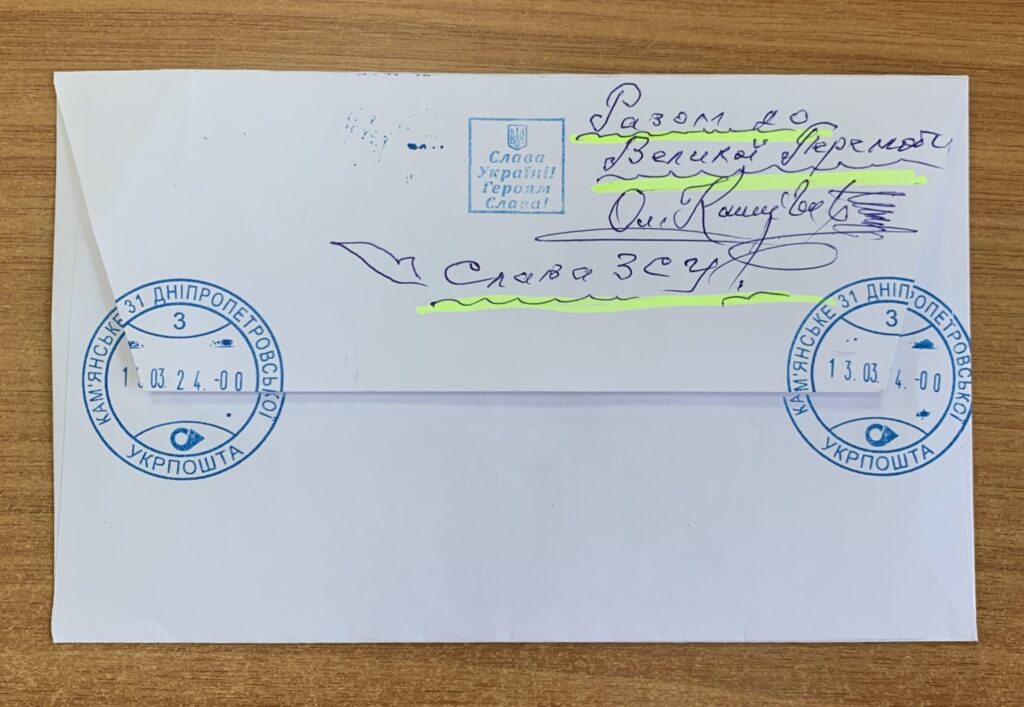 Разом до
Великої Перемоги
Ол.
Слава
Україні!
Героям
Слава!
Слава ЗСУ!
КАМ'ЯНСЬКЕ 31 ДНІПРОПЕТРОВСЬКОЇ
3
13.03.24.-00
УКРПОШТА
КАМ'ЯНСЬКЕ 31 ДНІПРОПЕТРОВСЬКОЇ
3
13.03. 4.-00
УКРПОШТА